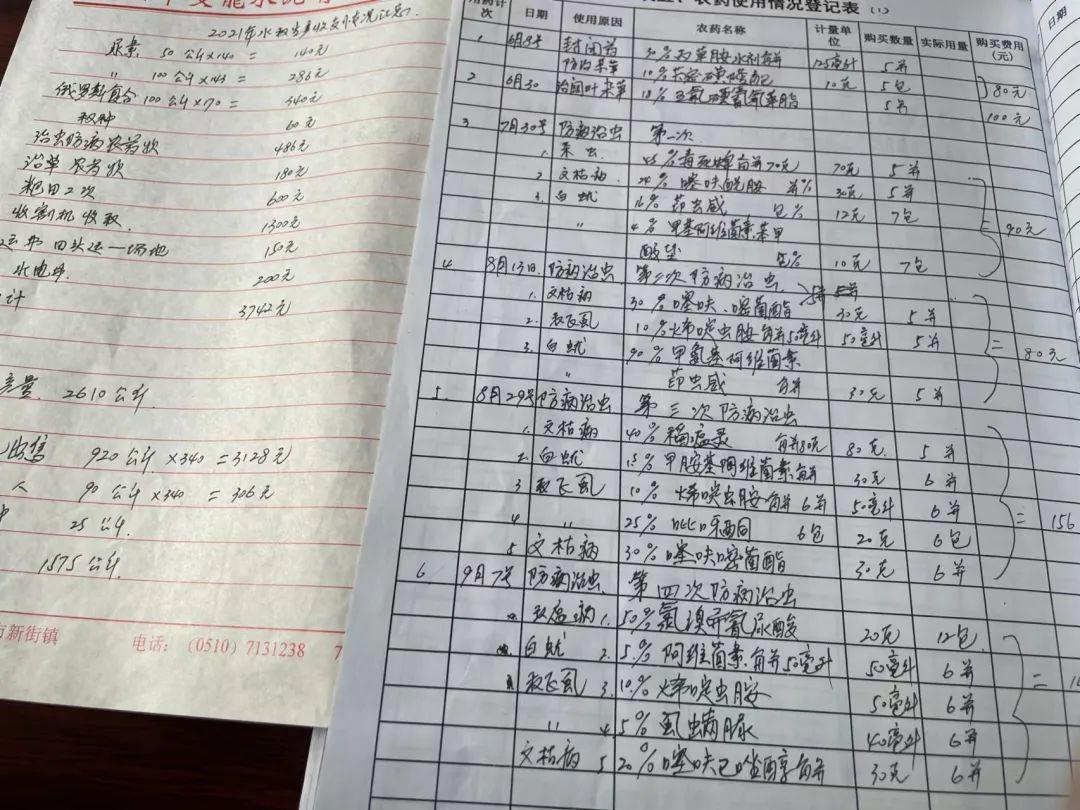 2021年水稻生产收支情况记录
尿素 50公斤×140= 140元
〃 100公斤×143= 286元
俄罗斯复合 100公斤×70= 340元
秧种 60元
治虫防病农药款 486元
治草农药款 180元
耙田2次 600元
收割机收取 1300元
田头运—场地 150元
水电费 200元
计 3742元
产量 2610公斤
出售 920公斤×340=3128元
人 90公斤×340=306元
25公斤
1575公斤
市新街镇 电话：（0510）7131238 7
农药使用情况登记表（1）
用药计次 日期 使用原因 农药名称 计量单位 购买数量 实际用量 购买费用（元）
1 6月8号 封闭前 30%丙草胺水剂每瓶 125毫升 5瓶
防治杂草 10% 10克 5包 80元
2 6月30 治阔叶杂草 18% 5瓶 100元
3 7月30号 防病治虫 第一次
1. 45%毒死蜱每瓶70克 70克 5瓶
2 文枯病 24%噻呋酰胺 30克 5瓶
3. 白虬 16%茚虫威 12克 7包 =90元
〃 4%甲基阿维菌素苯甲
酸盐 10克 7包
4 8月13日 防病治虫 第二次防病治虫
1. 文枯病 30%噻呋、嘧菌酯 30克 5瓶
2. 稻飞虱 10%烯啶虫胺每瓶50毫升 50毫升 5瓶 =80元
3. 白虬 90%甲氨基阿维菌素
〃 茚虫威 每瓶 30克 5瓶
5 8月29号 防病治虫 第三次防病治虫
1. 文枯病 40%稻瘟灵 每瓶80克 80克 5瓶
2. 白虬 15%甲胺基阿维菌素每瓶 30克 6瓶
3 稻飞虱 10%烯啶虫胺每瓶 6瓶 50毫升 6瓶 =156
4 〃 25%吡呀酮 6包 20克 6包
5 文枯病 30%噻呋嘧菌酯 30克 6瓶
6 9月7号 防病治虫 第四次防病治虫
1. 50%氯溴异氰尿酸 20克 12包
白虬 2. 5%阿维菌素每瓶50毫升 50毫升 6瓶
稻飞虱 3. 10%烯啶虫胺 50毫升 6瓶 =
〃 4 5%虱螨脲 40毫升 6瓶
文枯病 5 20%噻呋己唑醇每瓶 30克 6瓶
日期